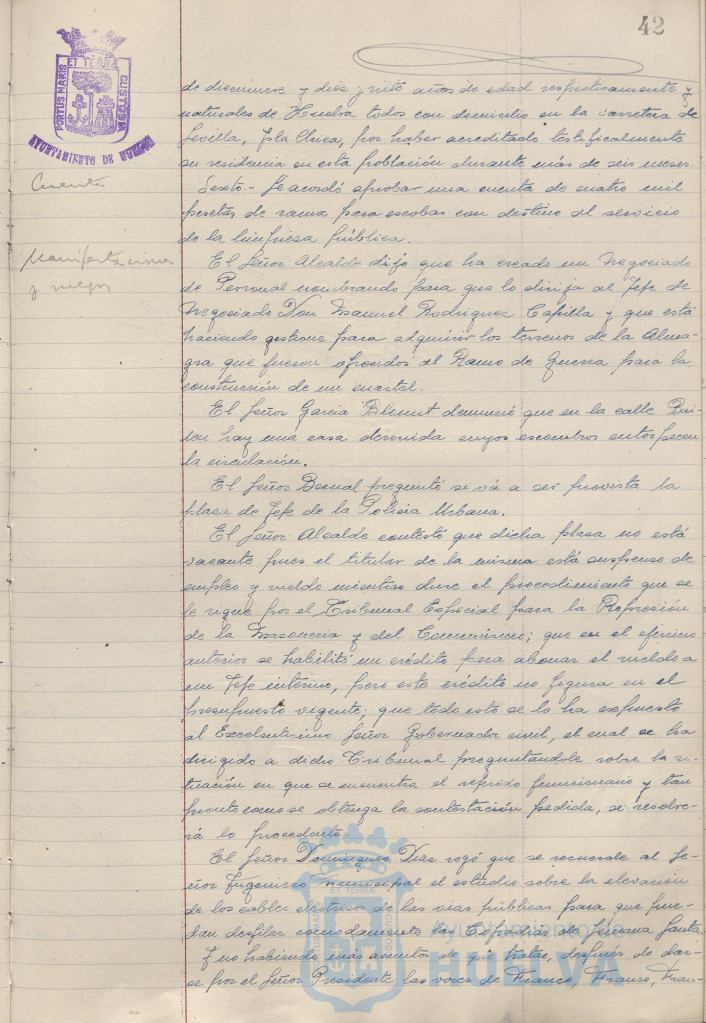 42
PORTUS MARIS ET TERRÆ CUSTODIA
AYUNTAMIENTO DE HUELVA
de diecinueve y diez y siete años de edad respectivamente y
naturales de Huelva todos con domicilio en la carretera de
Sevilla, Isla Chica, por haber acreditado testificalmente
su residencia en esta población durante más de seis meses.
Cuenta
Sexto - Se acordó aprobar una cuenta de cuatro mil
pesetas de rama para escobas con destino al servicio
de la limpieza pública.
Manifestaciones
y ruegos
El Señor Alcalde dijo que ha creado un Negociado
de Personal nombrando para que lo dirija al Jefe de
Negociado Don Manuel Rodriguez Capilla y que está
haciendo gestione para adquirir los terrenos de la Alma-
gra que fueron ofrecidos al Ramo de Guerra para la
construcción de un cuartel.
El Señor Garcia Blount denunció que en la calle Bai-
len hay una casa derruida cuyos escombros entorpecen
la circulación.
El Señor Bernal preguntó si vá a ser provista la
plaza de Jefe de la Policia Urbana.
El Señor Alcalde contestó que dicha plaza no está
vacante pues el titular de la misma está suspenso de
empleo y sueldo mientras dure el procedimiento que se
le sigue por el Tribunal Especial para la Represión
de la Masoneria y del Comunismo; que en el ejercicio
anterior se habilitó un crédito para abonar el sueldo a
un Jefe interino, pero este crédito no figura en el
presupuesto vigente; que todo esto se lo ha expuesto
al Excelentisimo Señor Gobernador civil, el cual se ha
dirigido a dicho Tribunal preguntandole sobre la si-
tuación en que se encuentra el referido funcionario y tan
pronto como se obtenga la contestación pedida, se resolve-
rá lo procedente.
El Señor Dominguez Dias rogó que se recuerde al Se-
ñor Ingeniero municipal el estudio sobre la elevación
de los cables electricos de las vias públicas para que pue-
dan desfilar comodamente las Cofradias de Semana Santa.
Y no habiendo más asuntos de que tratar, después de dar-
se por el Señor Presidente las voces de Franco, Franco, Fran-
Ayuntamiento de
HUELVA